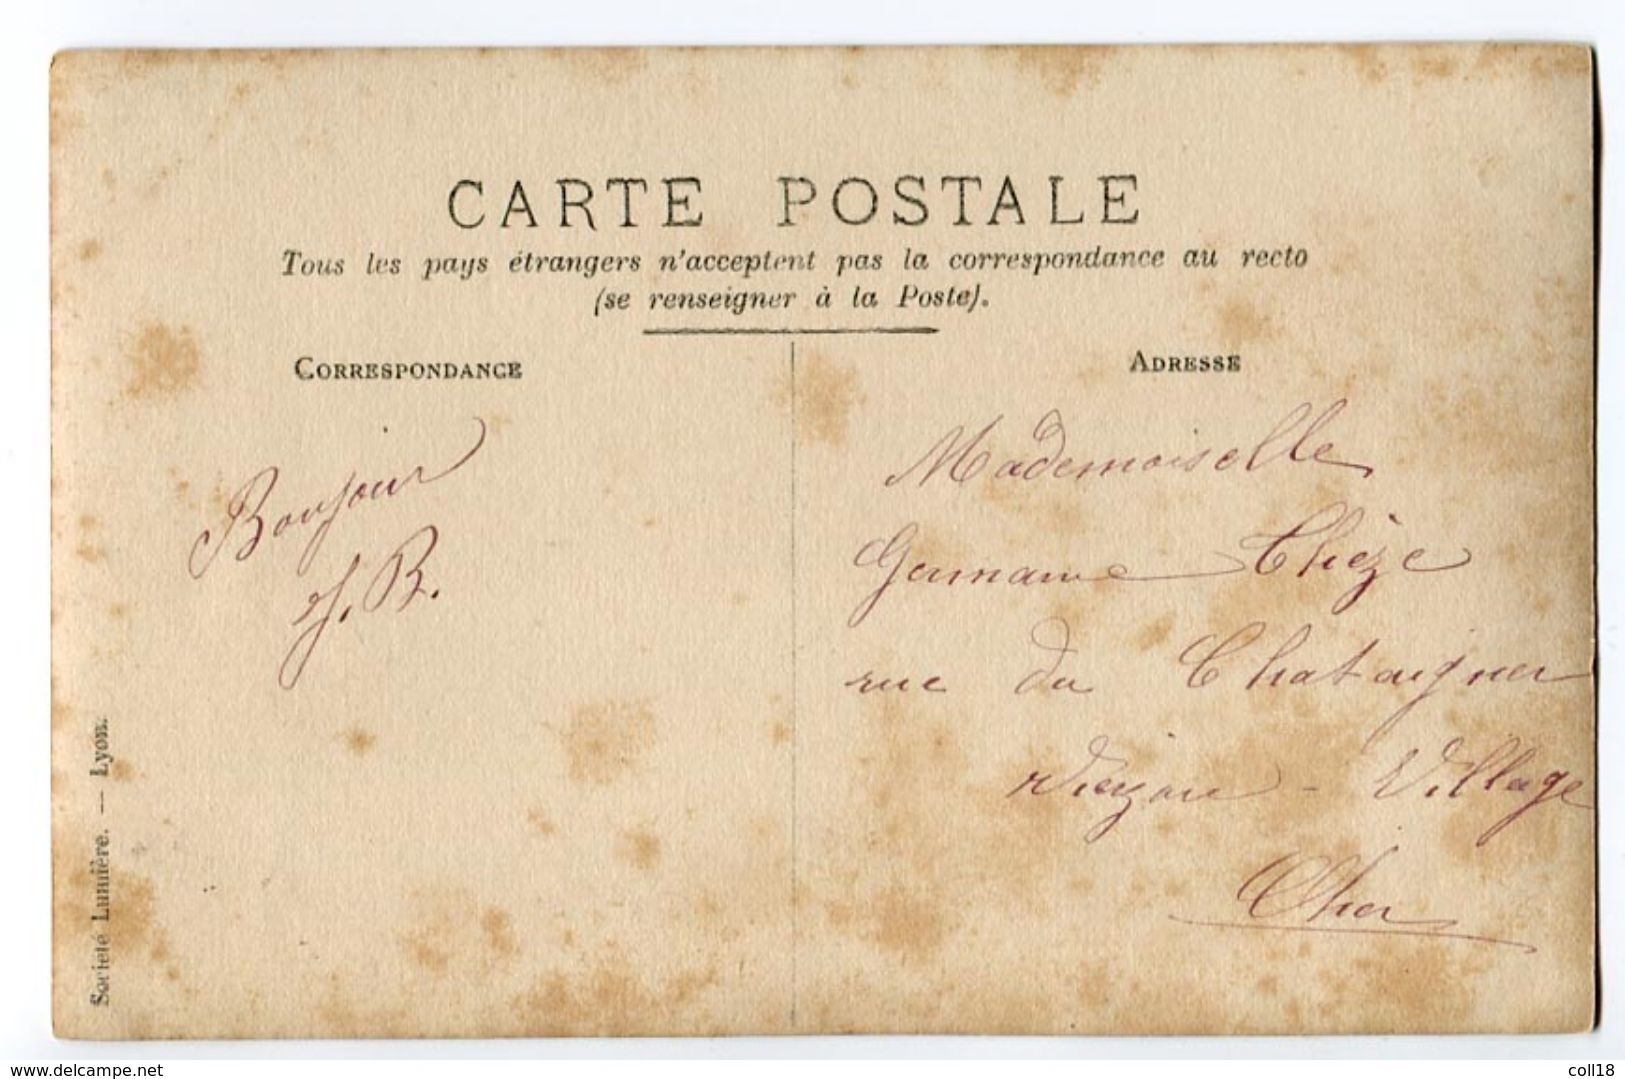 CARTE POSTALE
Tous les pays étrangers n'acceptent pas la correspondance au recto
(se renseigner à la Poste).
CORRESPONDANCE
Bonjour
J. B.
ADRESSE
Mademoiselle
Germaine Chèze
rue du Chataigner
Vierzon - Village
Cher
Société Lumière. — Lyon.
delcampe.net
coll18